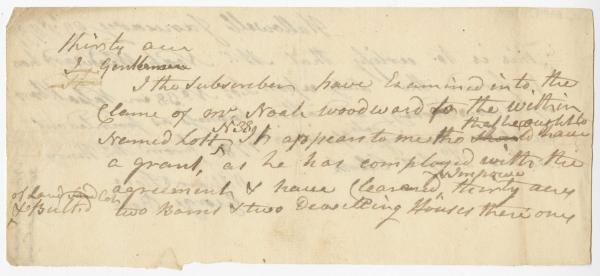 thirty acre
Gentlemen
I the Subscriber have Examined in to the
Clame of mr Noah woodward to the within
Named Lott No 38 It appears to me tho that he ought to have
a grant, as he has complyed with the
agreement & have Cleared & Improve thirty acres
of Land
& Builtd two Barns & two Dewelling Houses there ons